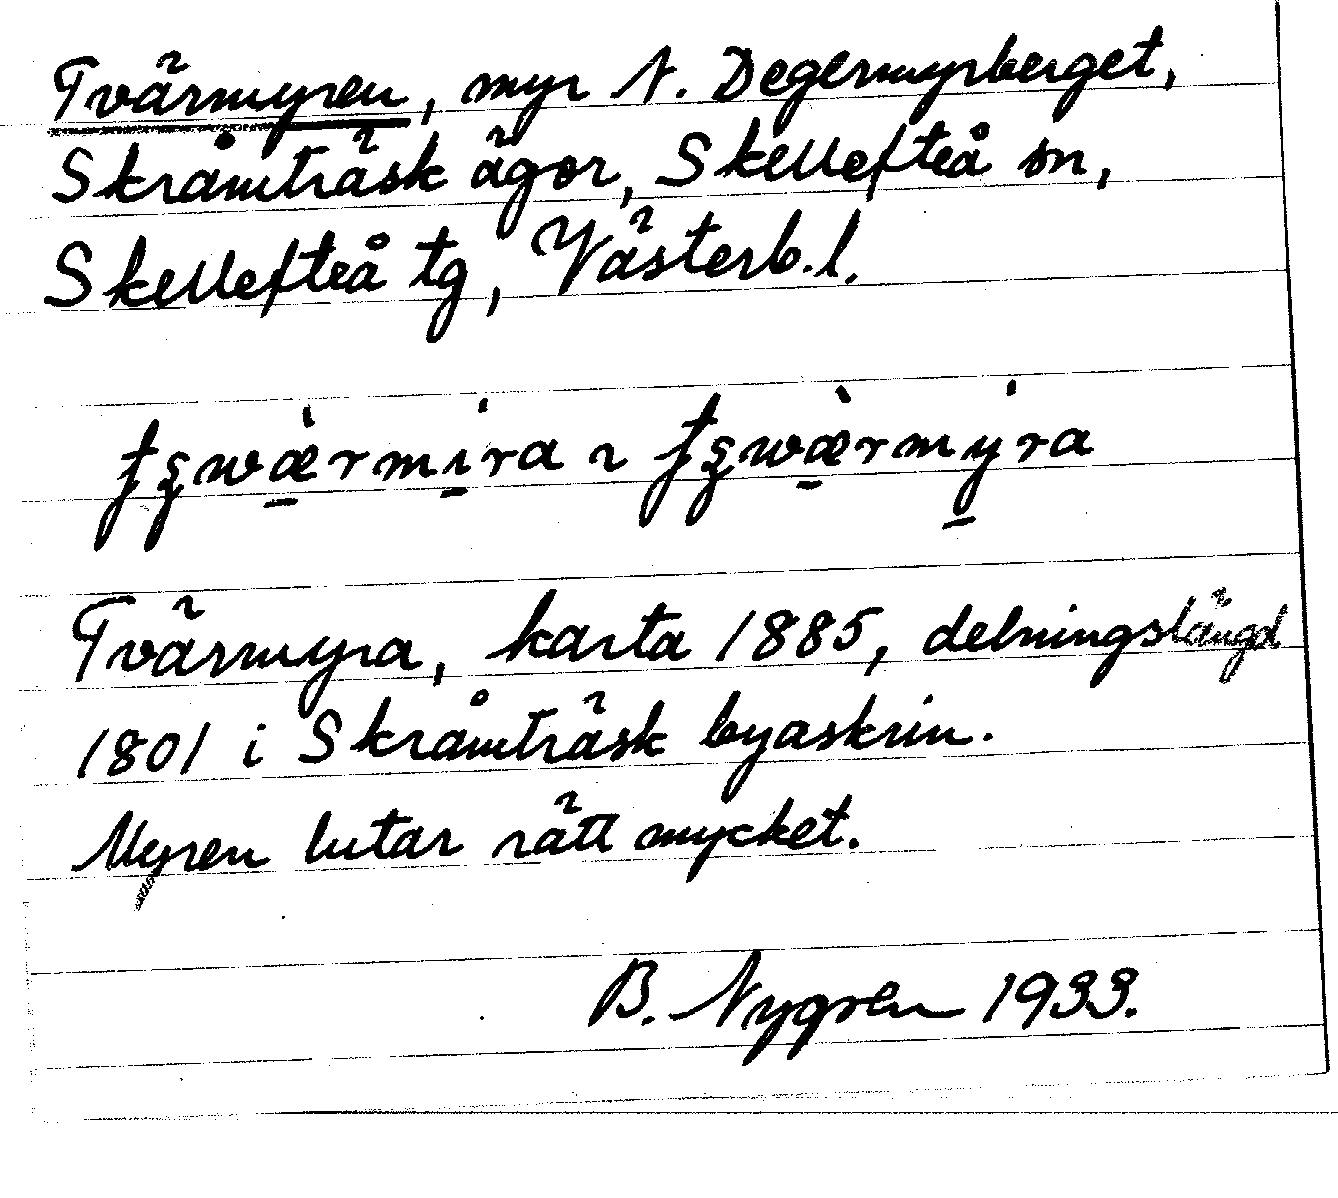 Tvärmyren, myr N. Degermyrberget,
Skråmträsk ägor, Skellefteå sn,
Skellefteå tg, Västerb.l.
Tvärmyra, karta 1885, delningslängd
1801 i Skråmträsk byaskrin.
Myren lutar rätt mycket.
B. Nygren 1933.